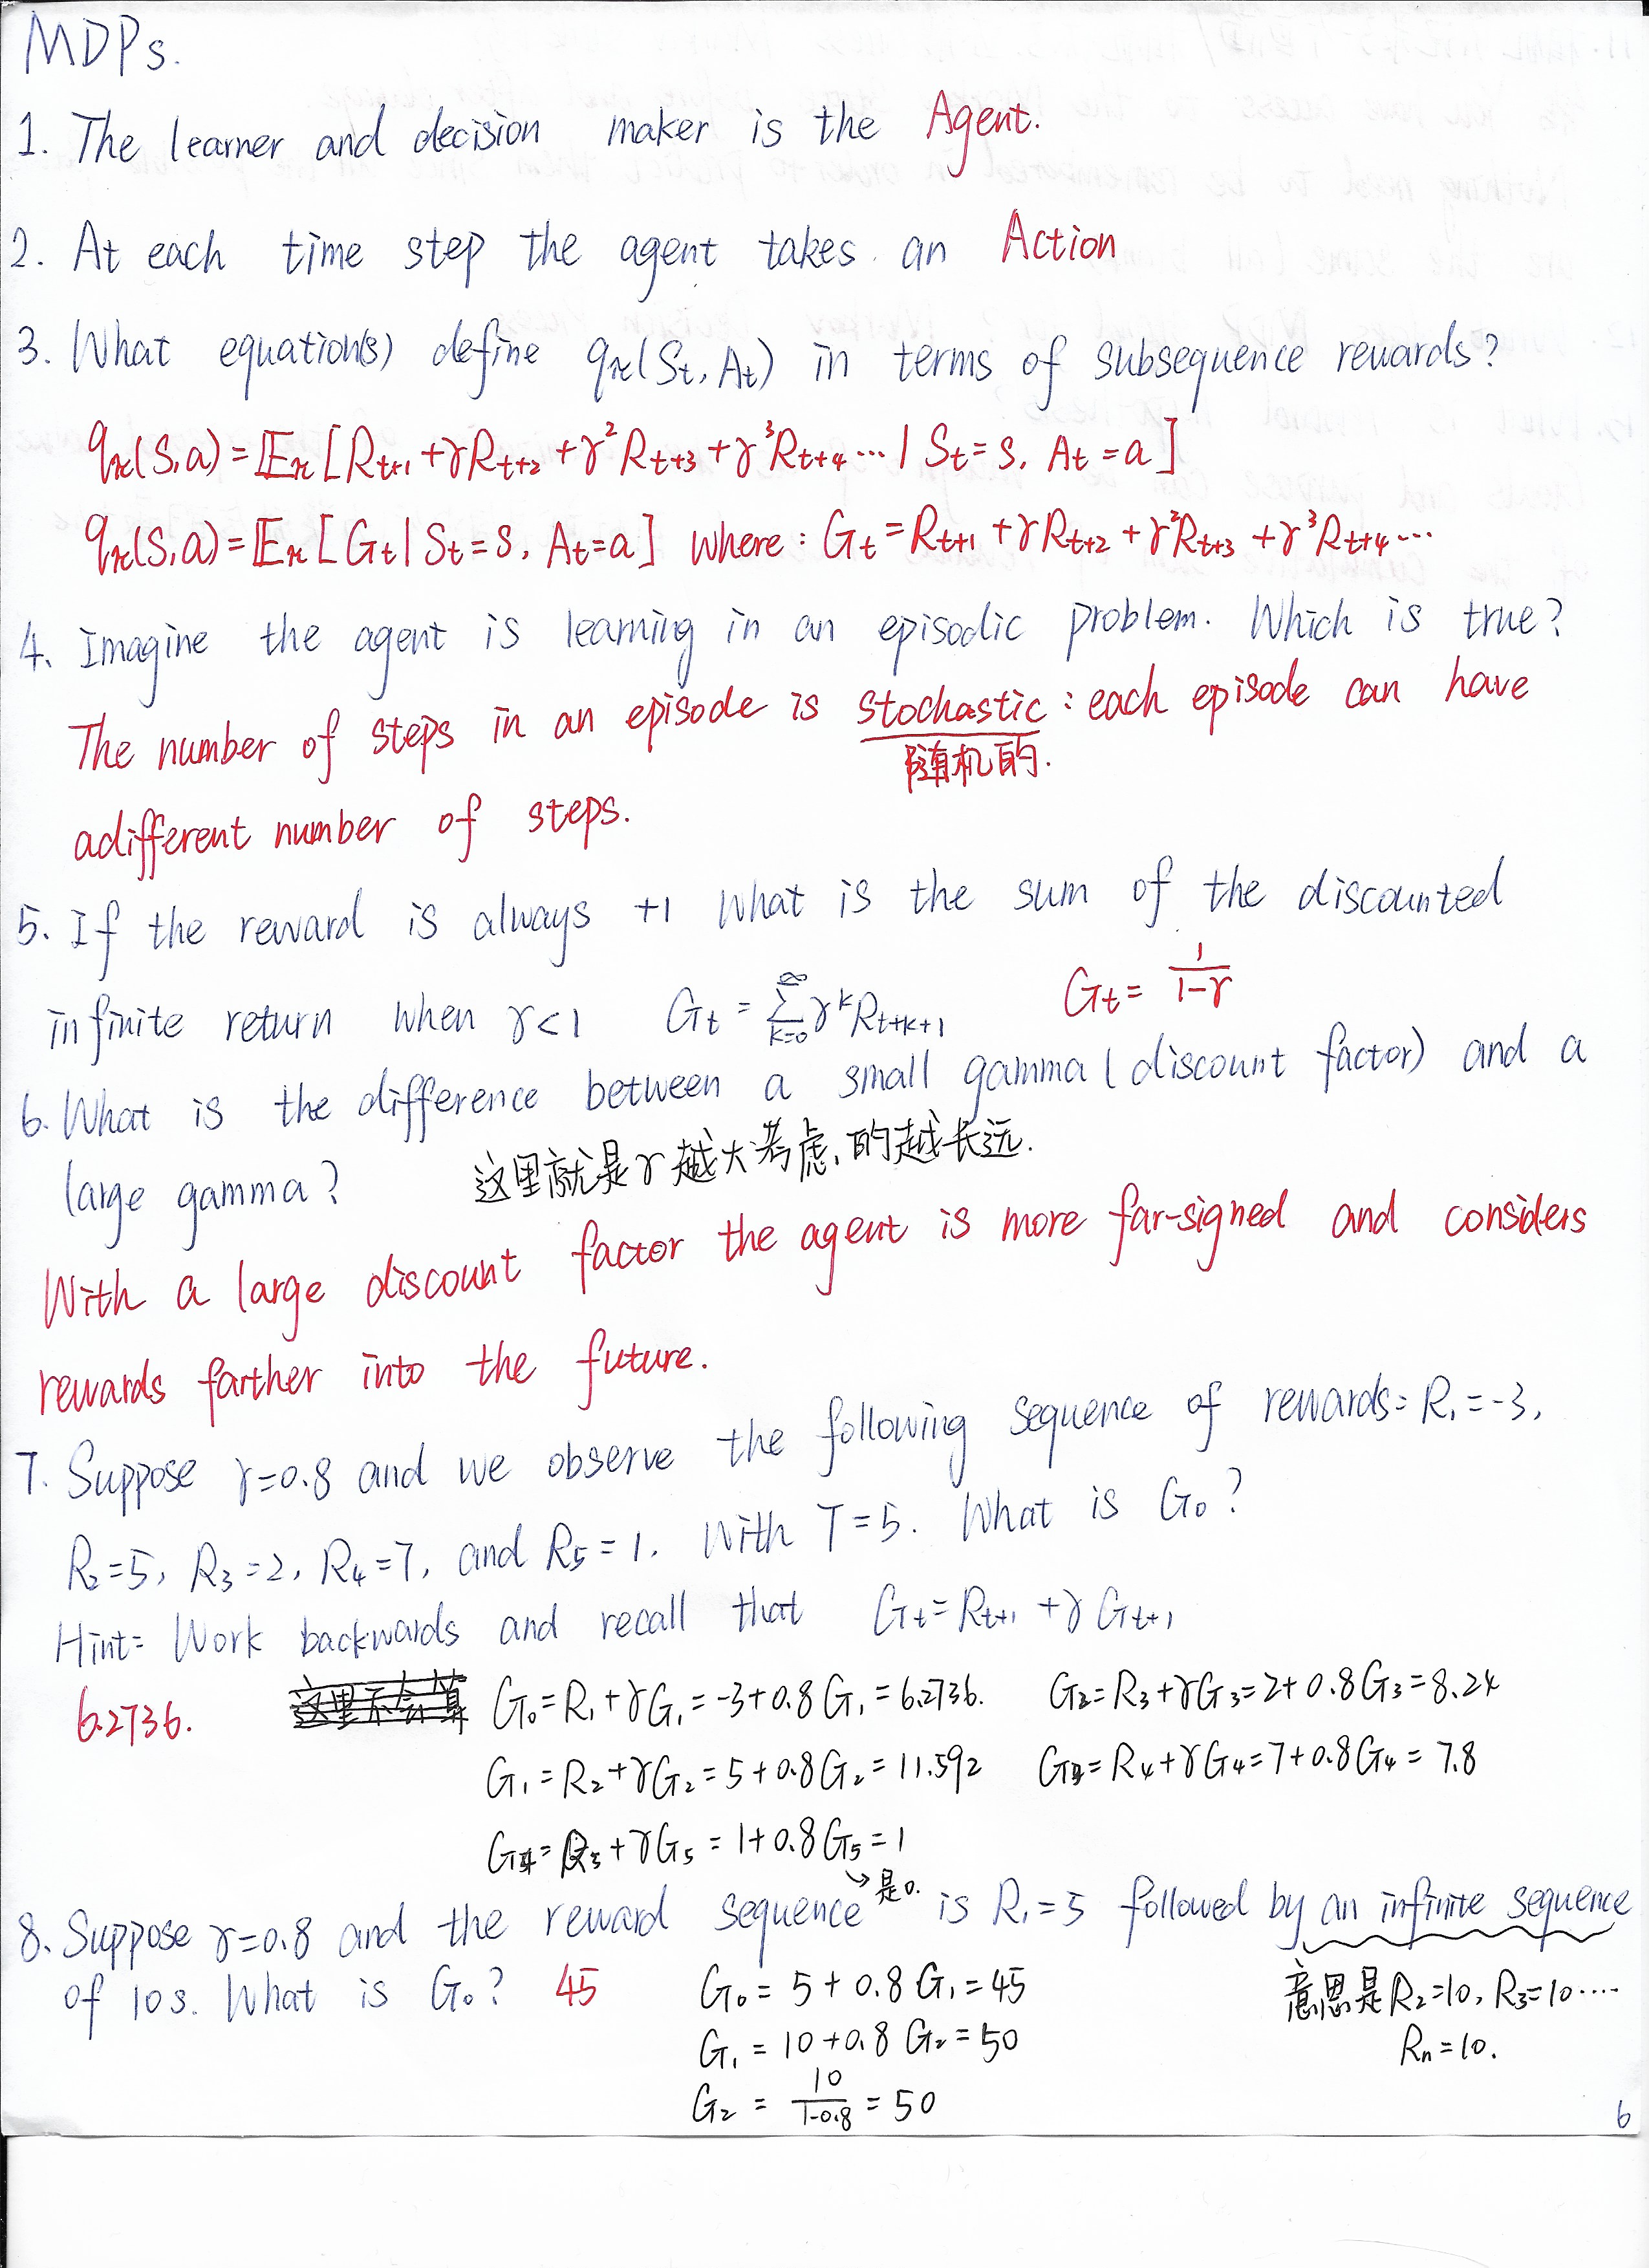 MDPs.
1. The learner and decision maker is the Agent.
2. At each time step the agent takes an Action
3. What equation(s) define qπ(St, At) in terms of subsequence rewards?
qπ(s,a) = 𝔼π[Rt+1 + γRt+2 + γ²Rt+3 + γ³Rt+4 ... | St = s, At = a]
qπ(s,a) = 𝔼π[Gt | St = s, At = a] where: Gt = Rt+1 + γRt+2 + γ²Rt+3 + γ³Rt+4 ...
4. Imagine the agent is learning in an episodic problem. Which is true?
The number of steps in an episode is stochastic: each episode can have
随机的.
adifferent number of steps.
5. If the reward is always +1 What is the sum of the discounted
infinite return when γ<1 Gt = ∑(k=0→∞) γ^k Rt+k+1 Gt = 1/(1-γ)
6. What is the difference between a small gamma (discount factor) and a
large gamma? 这里就是γ越大考虑的越长远.
With a large discount factor the agent is more far-signed and considers
rewards farther into the future.
7. Suppose γ=0.8 and we observe the following sequence of rewards: R₁=-3,
R₂=5, R₃=2, R₄=7, and R₅=1. With T=5. What is G₀?
Hint: Work backwards and recall that Gt = Rt+1 + γGt+1
6.2736. 这里不会算 G₀=R₁+γG₁=-3+0.8G₁=6.2736. G₂=R₃+γG₃=2+0.8G₃=8.24
G₁=R₂+γG₂=5+0.8G₂=11.592 G₃=R₄+γG₄=7+0.8G₄=7.8
G₄=R₅+γG₅=1+0.8G₅=1
↘是0.
8. Suppose γ=0.8 and the reward sequence is R₁=5 followed by an infinite sequence
of 10s. What is G₀? 45 G₀=5+0.8G₁=45 意思是R₂=10, R₃=10....
G₁=10+0.8G₂=50 Rn=10.
G₂=10/(1-0.8)=50
6